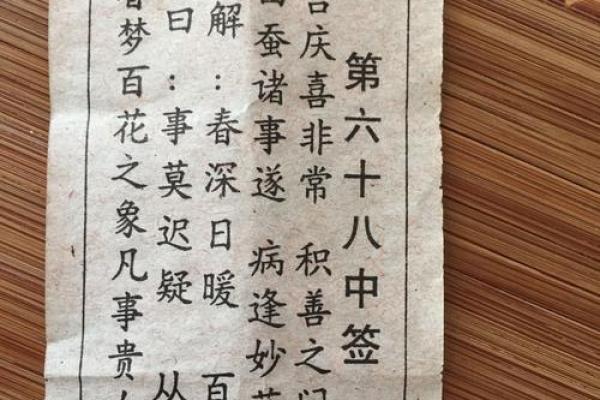 第六十八中签
吉庆喜非常 积善之门
田蚕诸事遂 病逢妙药
解：春深日暖 百
曰：事莫迟疑 丛
梦百花之象凡事贵人